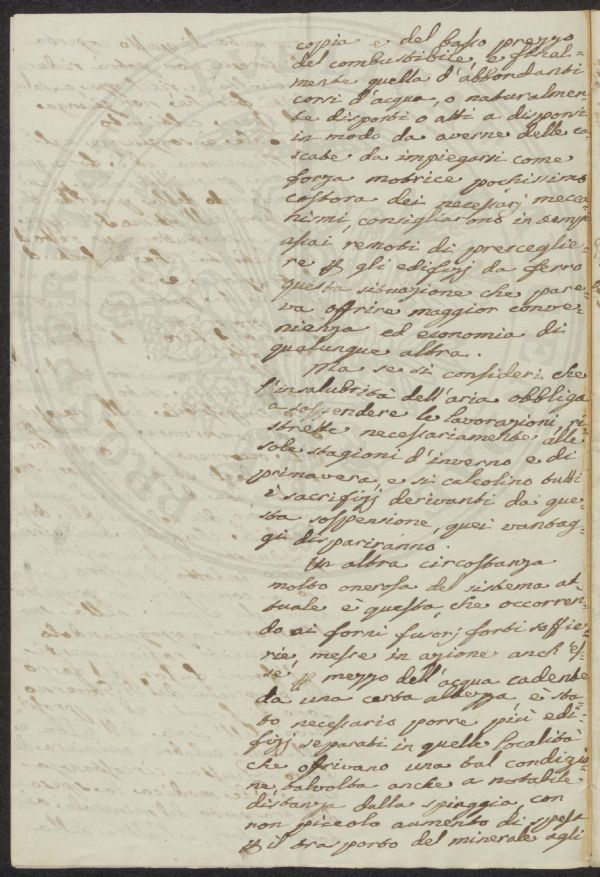 copia e del basso prezzo
del combustibile, e final=
mente quella d'abbondanti
corsi d'acqua, o naturalmen=
te disposti o atti a disporsi
in modo da averne delle ca=
scate da impiegarsi come
forza motrice pochissimo
costosa dei necessarj mecca=
nismi, consigliarono in tempi
assai remoti di presceglie=
re gli edifizj da ferro
questa situazione che pare=
va offrire maggior conve=
nienza ed economia di
qualunque altra.
Ma se si consideri che
l'insalubrità dell'aria obbliga
a sospendere le lavorazioni, ri=
strette necessariamente alle
sole stagioni d'inverno e di
primavera, e si calcolino tutti
i sacrifizj derivanti da que=
sta sospensione, quei vantag=
gi dispariranno.
Un altra circostanza
molto onerosa del sistema at=
tuale è questa, che occorren=
do ai forni fusorj forti soffie=
rie, messe in azione anch'es=
se, mezzo dell'acqua cadente
da una certa altezza, è sta=
to necessario porre più edi=
fizj separati in quelle località
che offrivano una tal condizio=
ne talvolta anche a notabile
distanza dalla spiaggia, con
non piccolo aumento di spesa
il trasporto del minerale agli